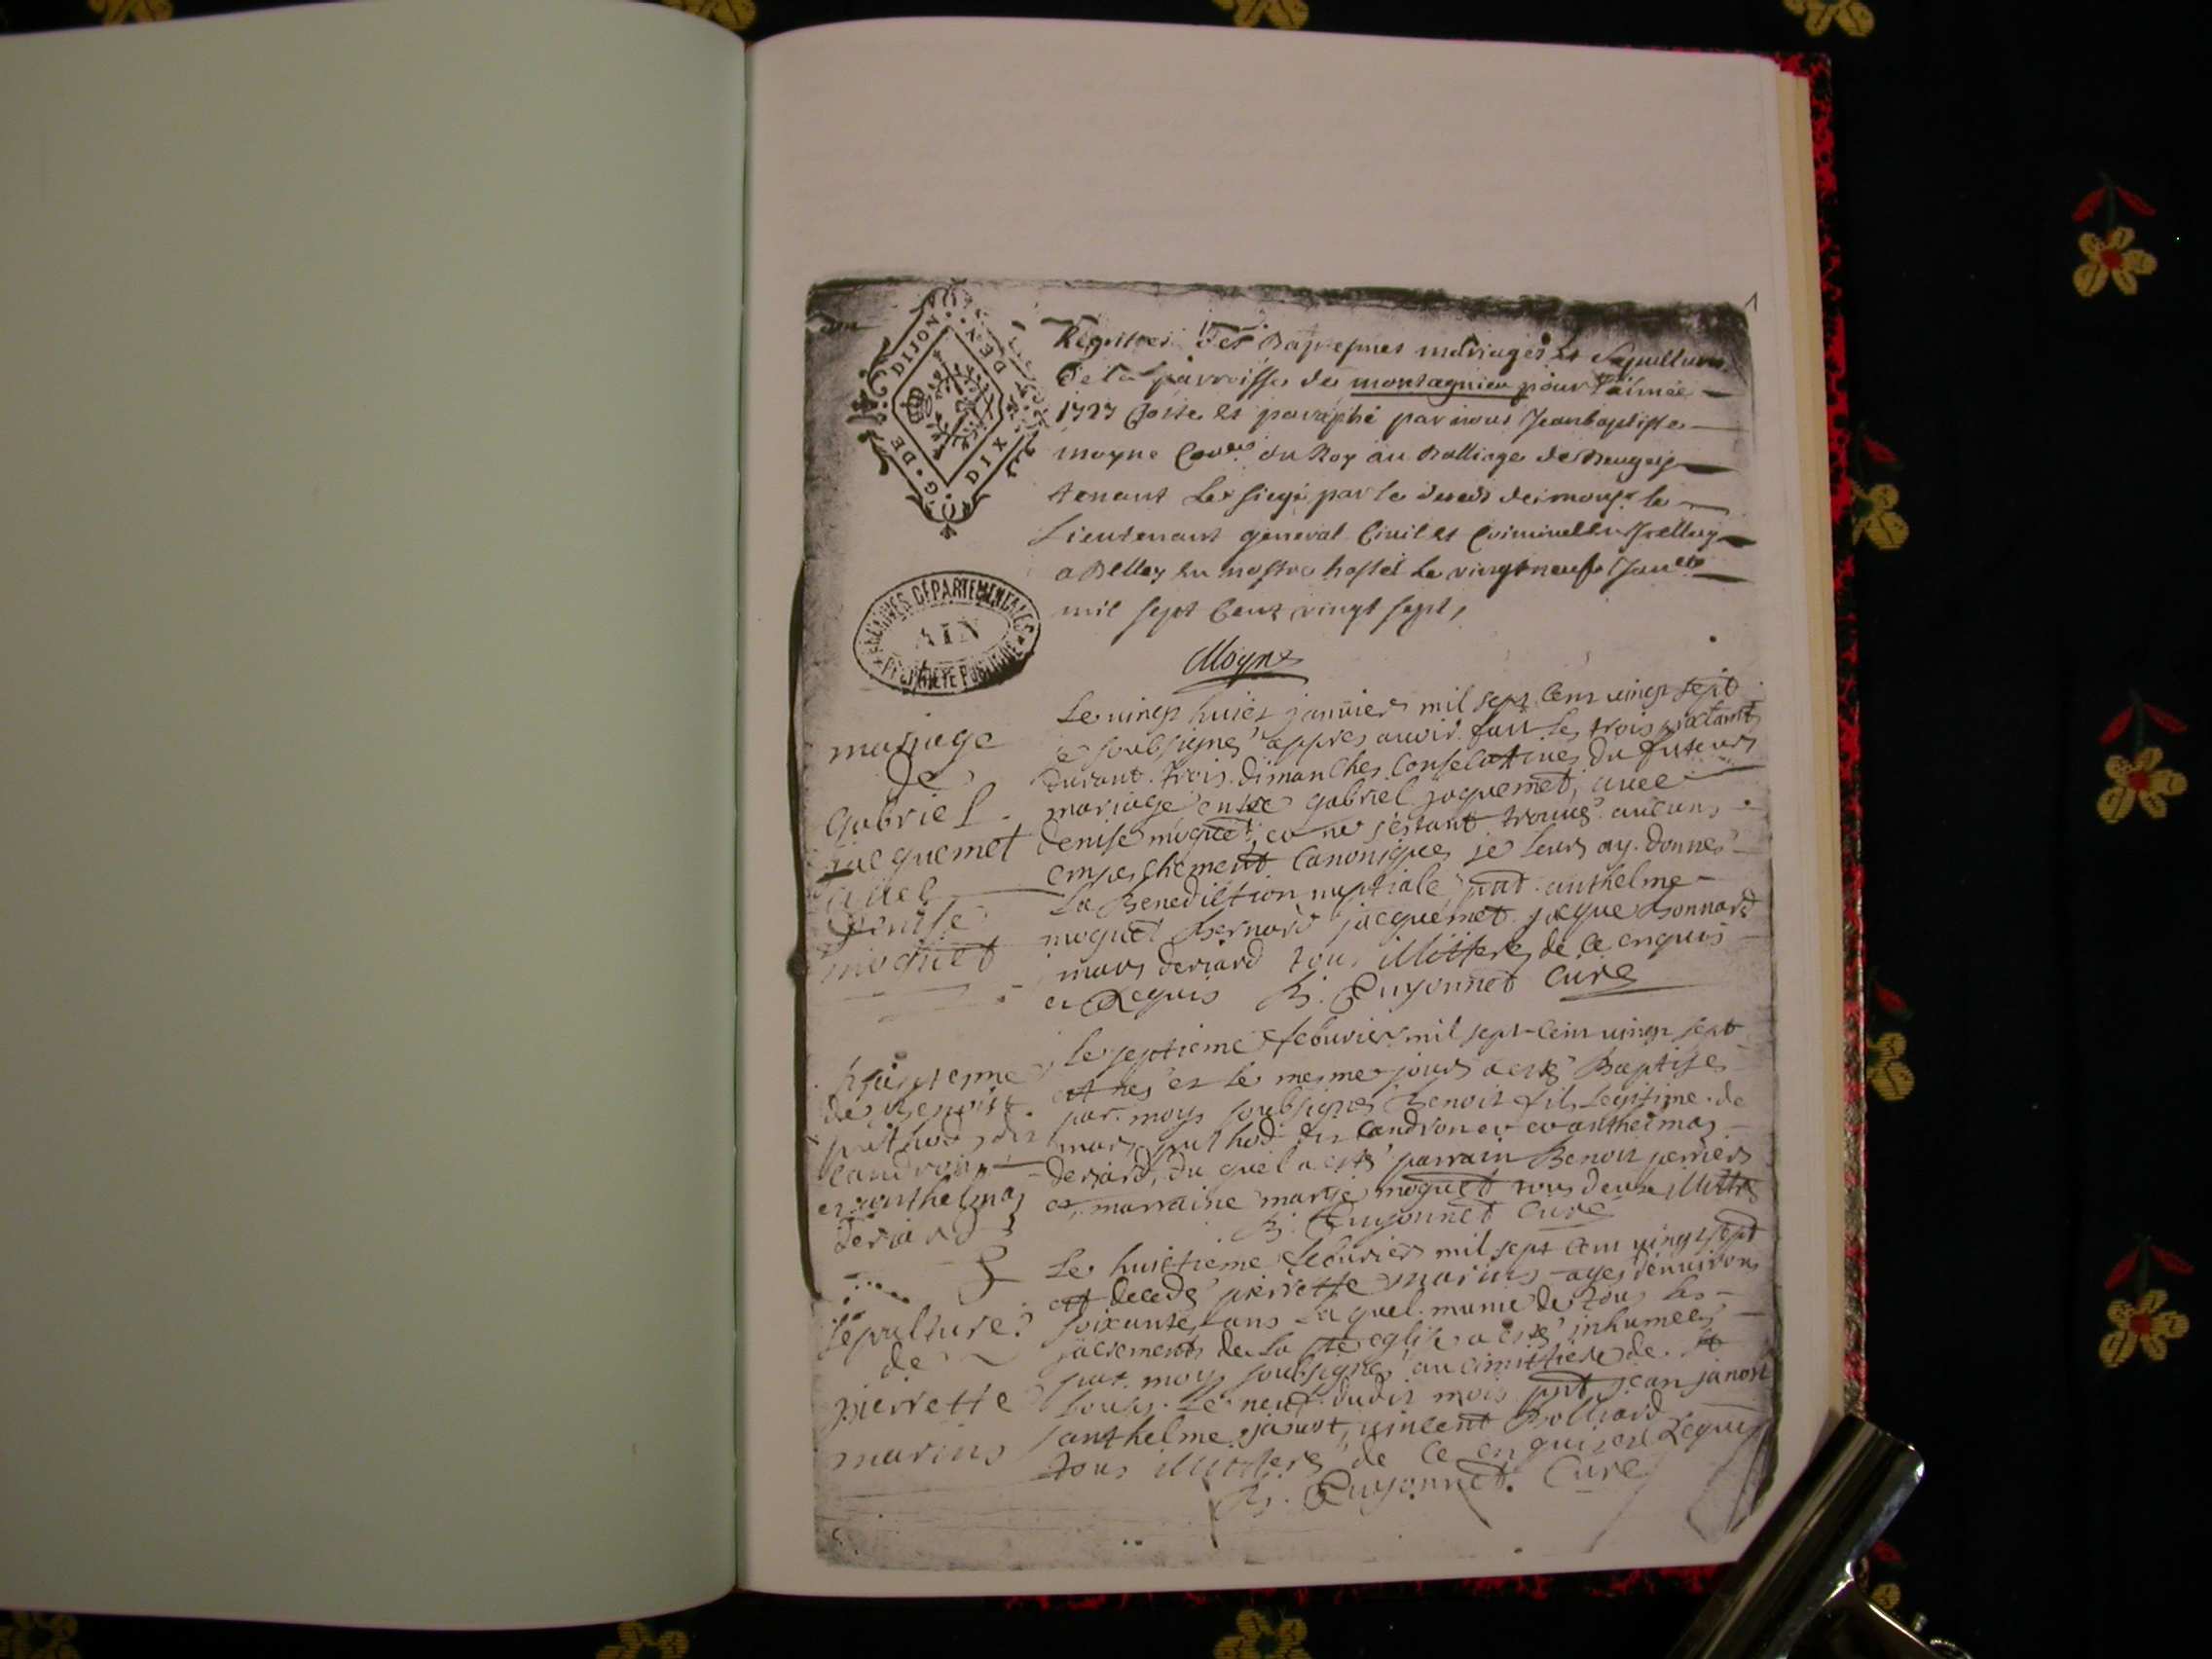 1
G. DE DIJON
DIX DEN.
Registre des Baptesmes mariages et Sepultures
de la parroisse de montagnieu pour l'année
1727 Cotté et paraphé par nous Jean baptiste
moyne Coner du Roy au Balliage de Beugey
tenant le siege par le deceds de monsr le
Lieutenant general Civil et Criminel
a Belley en nostre hostel le vingt neufe Janvier
mil sept Cent vingt sept,
Moyne
ARCHIVES DÉPARTEMENTALES
AIN
PROPRIÉTÉ PUBLIQUE
mariage
de
gabriel
jacquemet
avec
denise
moguet
Le vingt huict janvier mil sept Cent vingt sept
je soubsigné appres avoir fait les trois
durant trois dimanches Consecutives du futeur
mariage entre gabriel jaquemet, avec
denise moguet, et ne s'estant trouvé aucuns
empeschement Canonique je leurs ay donné
La Benediction nuptiale, pnt anthelme
moguet Bernard jacquemet jacque Bonnard
marc deriard tous illittere de ce enquis
et Requis B. Guyonnet Curé
baptesme
de Benoist
pruthod dit
candron
et anthelmaz
deriard
Le septieme febvrier mil sept Cent vingt sept
est né et le mesme jours a esté Baptisé
par moy soubsigné Benoit fils Legitime de
marc pruthod dit Candron et anthelmaz
deriard, du quel a esté parrain Benoit perrier
et marraine marie moguet tous deux illittré
B. Guyonnet Curé
sepulture
de
pierrette
marins
Le huictieme febvrier mil sept Cent vingt sept
est decedé pierrette marins agée denvirons
soixante ans la quel munie de tous les
sacrements de La ste eglise a esté inhumée
par moy soubsigné au cimittiere de st
Le neuf dudit mois pnt jean janort
anthelme janort, vincent Bolliard
tous illittere de ce enquis et Requis
B. Guyonnet Curé